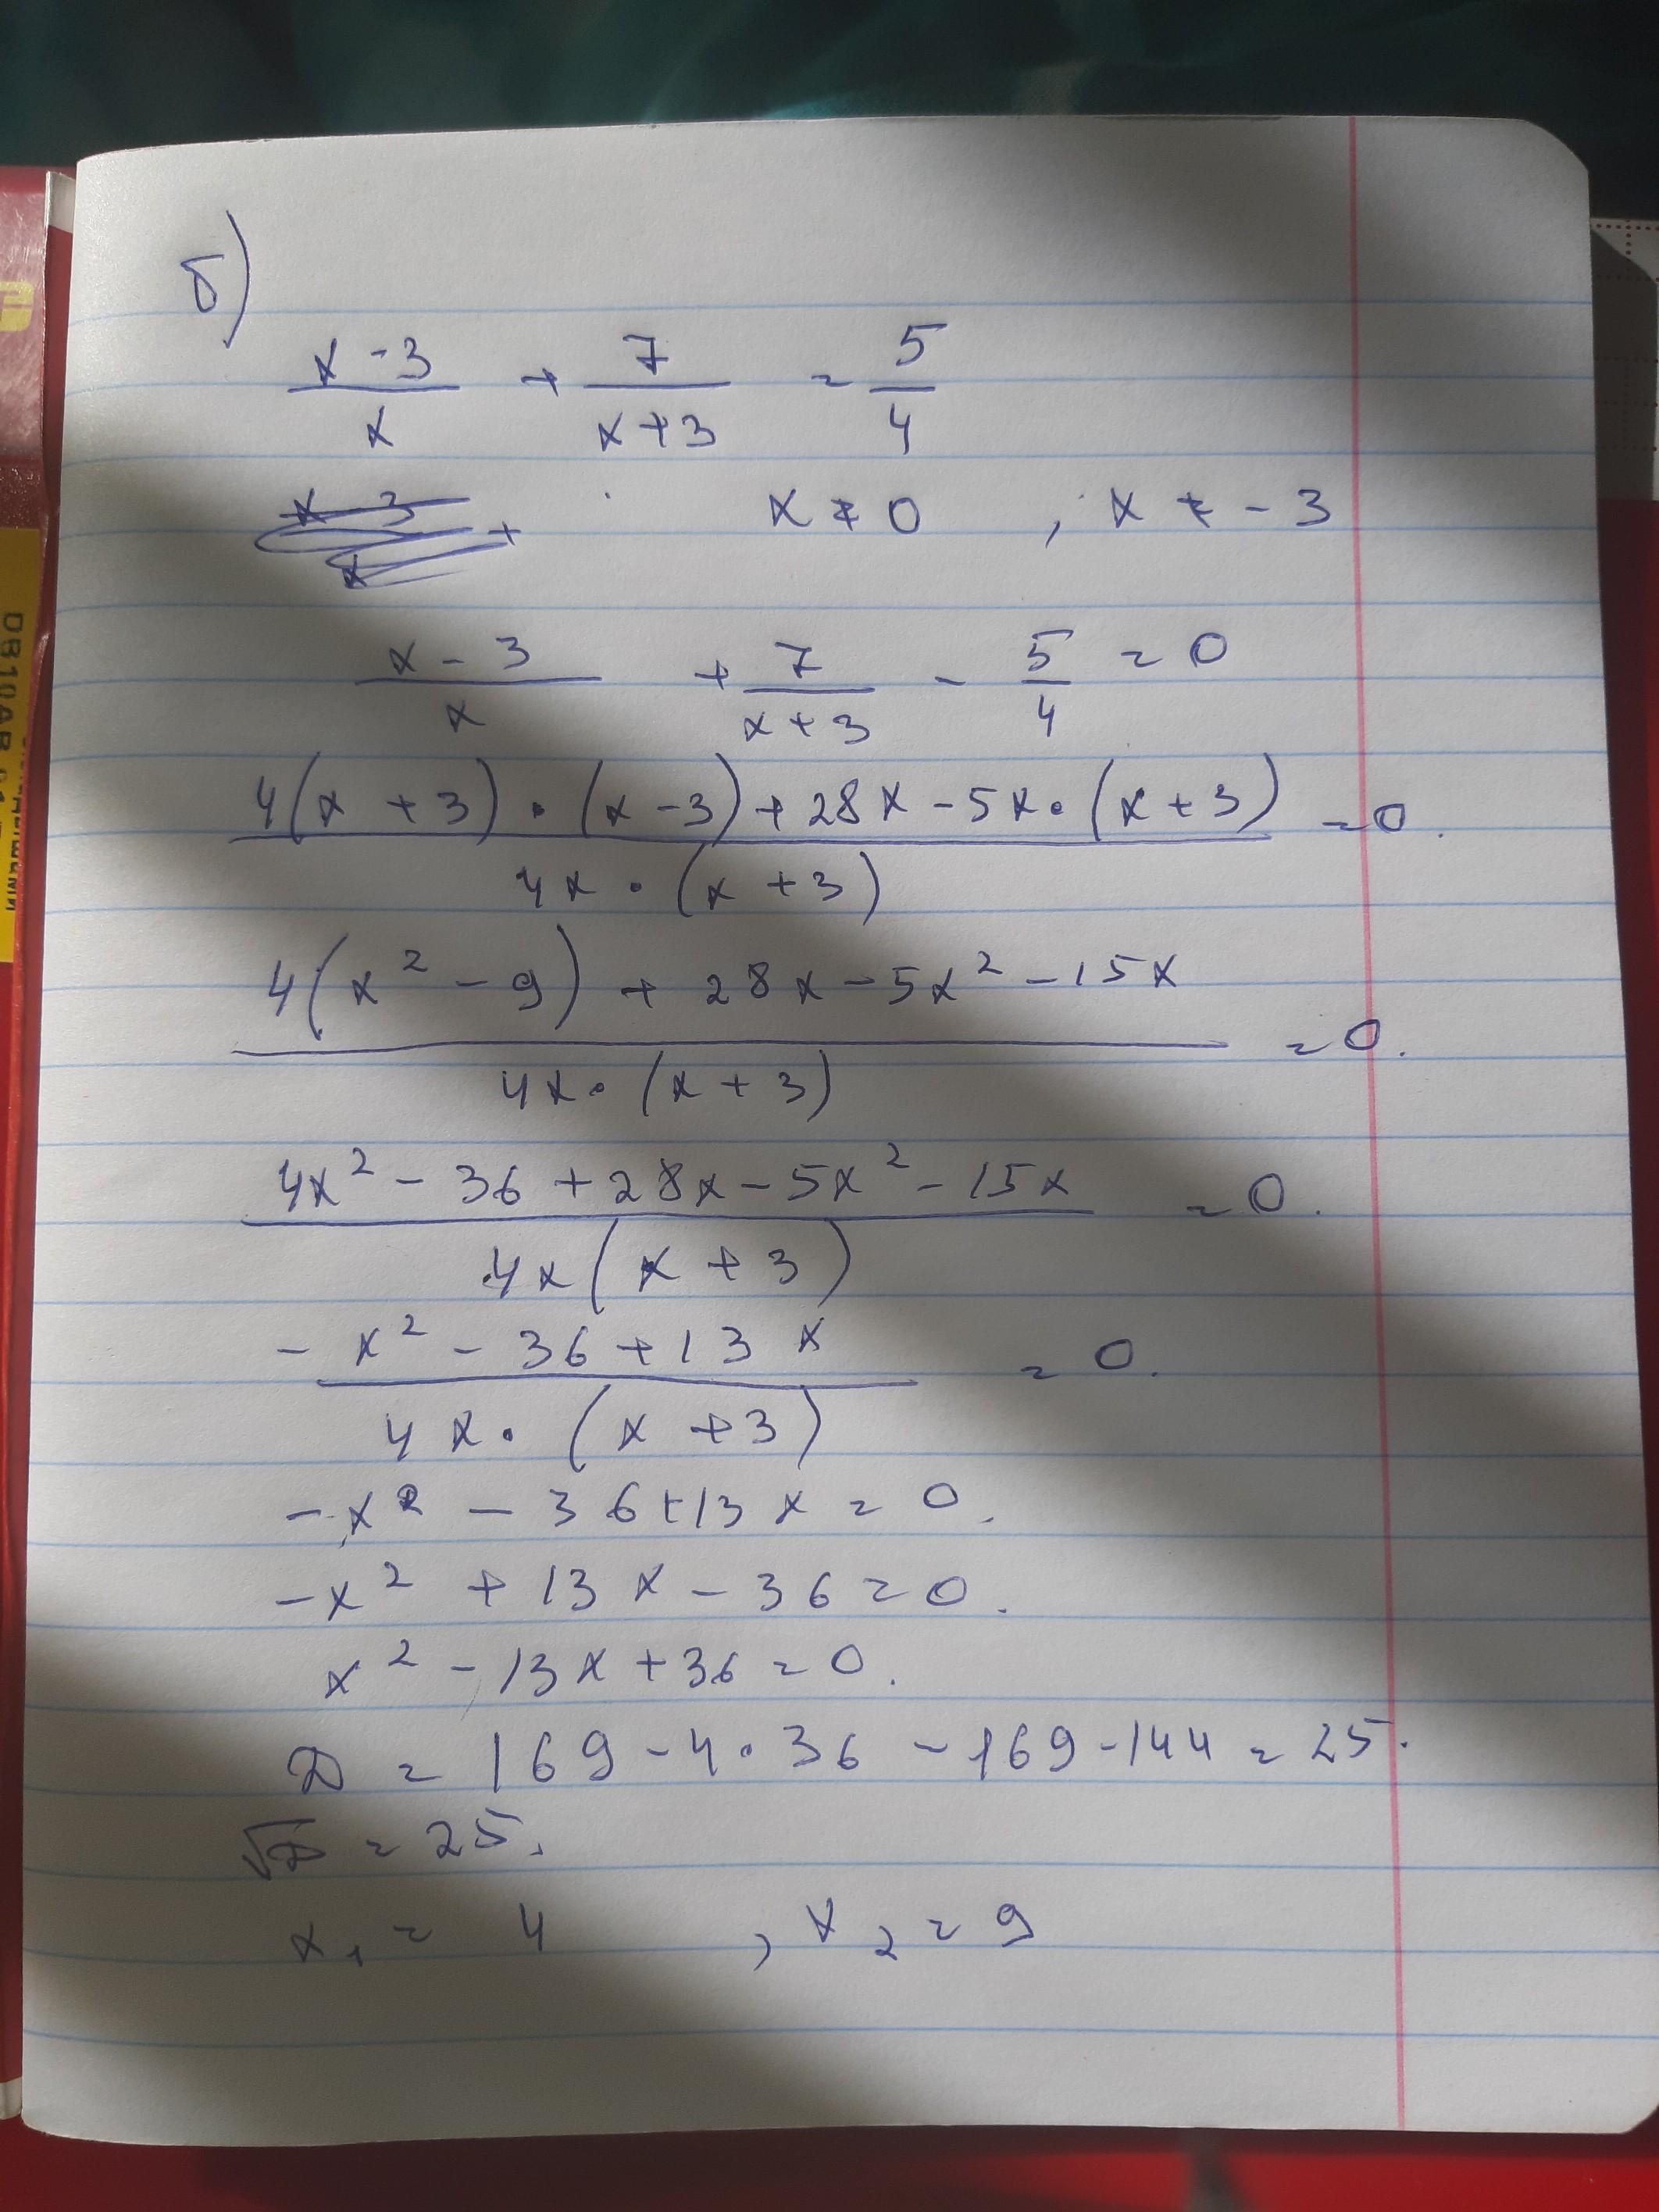 б)
x - 3 / x + 7 / x + 3 = 5 / 4
x ≠ 0 , x ≠ - 3
x - 3 / x + 7 / x + 3 - 5 / 4 = 0
4(x + 3) · (x - 3) + 28x - 5x · (x + 3) / 4x · (x + 3) = 0.
4(x² - 9) + 28x - 5x² - 15x / 4x · (x + 3) = 0.
4x² - 36 + 28x - 5x² - 15x / 4x(x + 3) = 0.
- x² - 36 + 13x / 4x · (x + 3) = 0.
- x² - 36 + 13x = 0.
- x² + 13x - 36 = 0.
x² - 13x + 36 = 0.
D = 169 - 4 · 36 - 169 - 144 = 25.
√D = 25.
x₁ = 4 , x₂ = 9